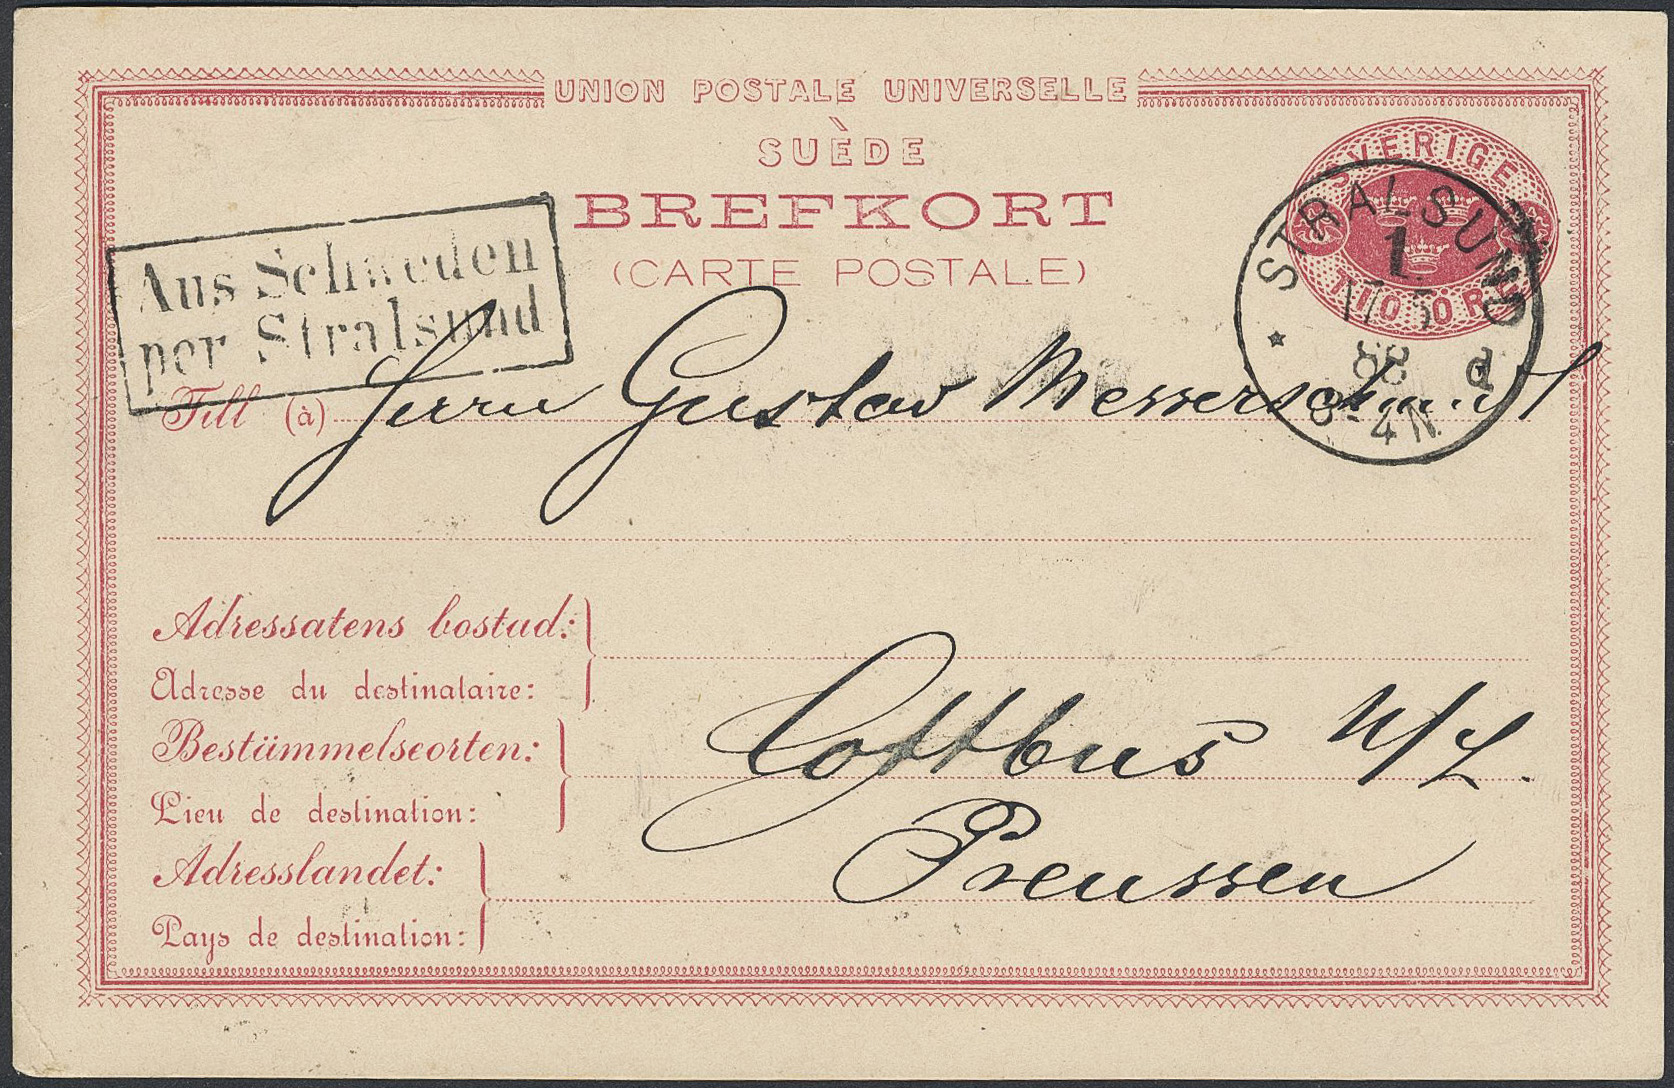 UNION POSTALE UNIVERSELLE
SUÈDE
BREFKORT
(CARTE POSTALE)
SVERIGE
TIO ÖRE
STRALSUND
1
5
88 d
3-4N.
Aus Schweden
per Stralsund
Till (à) Herrn Gustav Messerschmidt
Adressatens bostad:
Adresse du destinataire:
Bestämmelseorten: Cottbus N/L.
Lieu de destination:
Adresslandet: Preussen
Pays de destination: